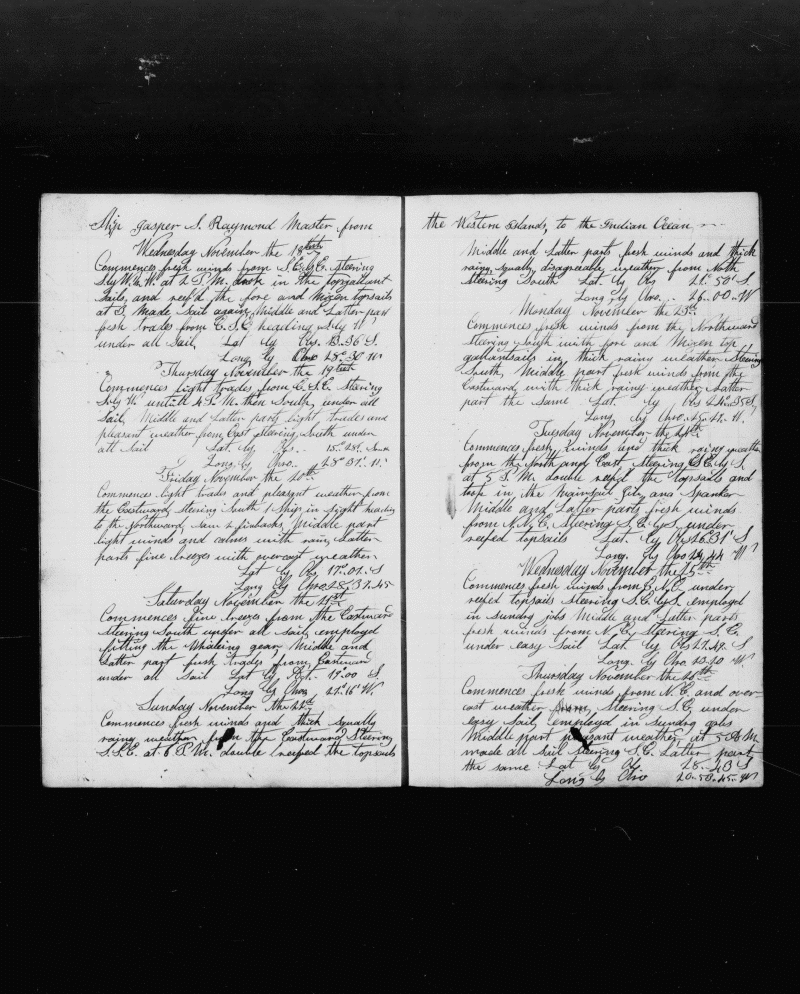 Ship Jasper S. Raymond Master from
Wednesday November the 18teth
Commences fresh winds from S.E. by E. Steering
S by W. 1/2 W. at 2 P.M. took in the topgallant
Sails, and reef'd the fore and Mizen topsails
at 5, Made Sail again, Middle and Latter part
fresh trades from E.S.E. heading S. by W
under all Sail, Lat by Obs. 13.36 S.
Long. by Chro 28°30 W
Thursday November the 19teth
Commences light trades from E.S.E. Steering
S by W. untill 4 P.M. then South, under all
Sail, Middle and Latter parts light trades and
pleasant weather from East Steering South under
all Sail Lat. by Obs. 15.28. South
Long. by Chro. 28°37. W.
Friday November the 20th
Commences light trades and pleasant weather from
the Eastward, Steering South 1 Ship in Sight heading
to the Northward, Saw 2 finbacks, Middle part
light winds and calms with rain, Latter
parts fine breezes with overcast weather
Lat by Obs 17°.01. S
Long by Chro. 28.37.45
Saturday November the 21st
Commences fine breezes from the Eastward
Steering South under all Sail, employd
fitting the Whaleing gear, Middle and
Latter part fresh trades from Eastward
under all Sail Lat by Obs. 19°.00 S
Long by Chro. 27°.16' W.
Sunday November the 22nd
Commences fresh winds and thick Squally
rainy weather from the Eastward, Steering
S.S.E. at 6 P.M. double reefed the topsails
the Western Islands, to the Indian Ocean
Middle and Latter parts fresh winds and thick
rainy, Squally, disagreable weather from North
Steering South Lat. by Obs 21°.50' S.
Long. by Chro. 26.00.. W
Monday November the 23rd
Commences fresh winds from the Northward
Steering South with fore and Mizen top
gallantsails in thick rainy weather Steering
South, Middle part fresh winds from the
Eastward, with thick rainy weather, Latter
part the Same Lat. by Obs 24.. 35 S,
Long. by Chro. W.
Tuesday November the 24th
Commences fresh winds and thick rainy weather
from the North and East, Steering S.E. by S.
at 5 P.M. double reef'd the topsails and
took in the Mainsail Gib, and Spanker
Middle and Latter parts fresh winds
from N.N.E. Steering S.E. by S, under
reefed topsails Lat. by Obs 26.31' S
Long. by Chro 24.44 W
Wednesday November the 25th
Commences fresh winds from E.N.E. under
reefed topsails Steering S.E. by S. employed
in Sundry jobs Middle and Latter parts
fresh winds from N.E. Steering S.E.
under easy Sail Lat. by Obs 27.49. S
Long. by Chro W
Thursday November the 26th
Commences fresh winds from N.E. and over
cast weather Steering S.E. under
easy Sail, employd in Sundry jobs
Middle part pleasant weather, at 5 A M.
made all Sail Steering S.E. Latter part
the same Lat by Ob. 28.. 43 S
Long by Chro 20..50..45.. W